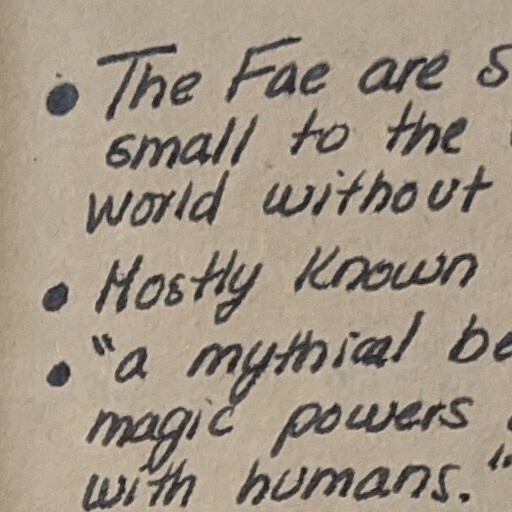 • The Fae are
small to the
world without
• Mostly known
• "a mythical
magic powers
with humans."